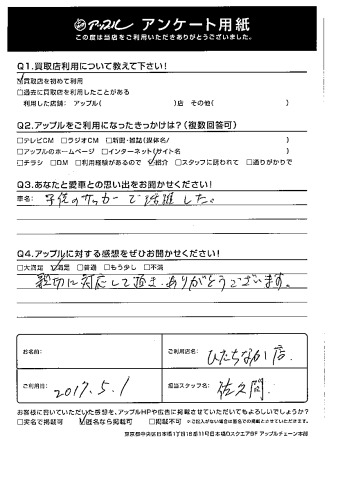 アップル アンケート用紙
この度は当店をご利用いただきありがとうございました。
Q1.買取店利用について教えて下さい!
☑買取店を初めて利用
□過去に買取店を利用したことがある
利用した店舗: アップル( )店 その他( )
Q2.アップルをご利用になったきっかけは?(複数回答可)
□テレビCM □ラジオCM □新聞・雑誌(媒体名 )
□アップルのホームページ □インターネット(サイト名 )
□チラシ □DM □利用経験があるので ☑紹介 □スタッフに誘われて □通りがかりで
Q3.あなたと愛車との思い出をお聞かせください!
車名: 子供のサッカーで活躍した。
Q4.アップルに対する感想をぜひお聞かせください!
□大満足 ☑満足 □普通 □もう少し □不満
親切に対応して頂き、ありがとうございます。
お名前:
ご利用店名: ひたちなか店
ご利用日: 2017.5.1
担当スタッフ名: 佐久間
お客様に書いていただいた感想を、アップルHPや広告に掲載させていただいてもよろしいでしょうか?
□実名で掲載可 ☑匿名なら掲載可 □掲載不可 ※ご記入がない場合は匿名での掲載とさせていただきます。